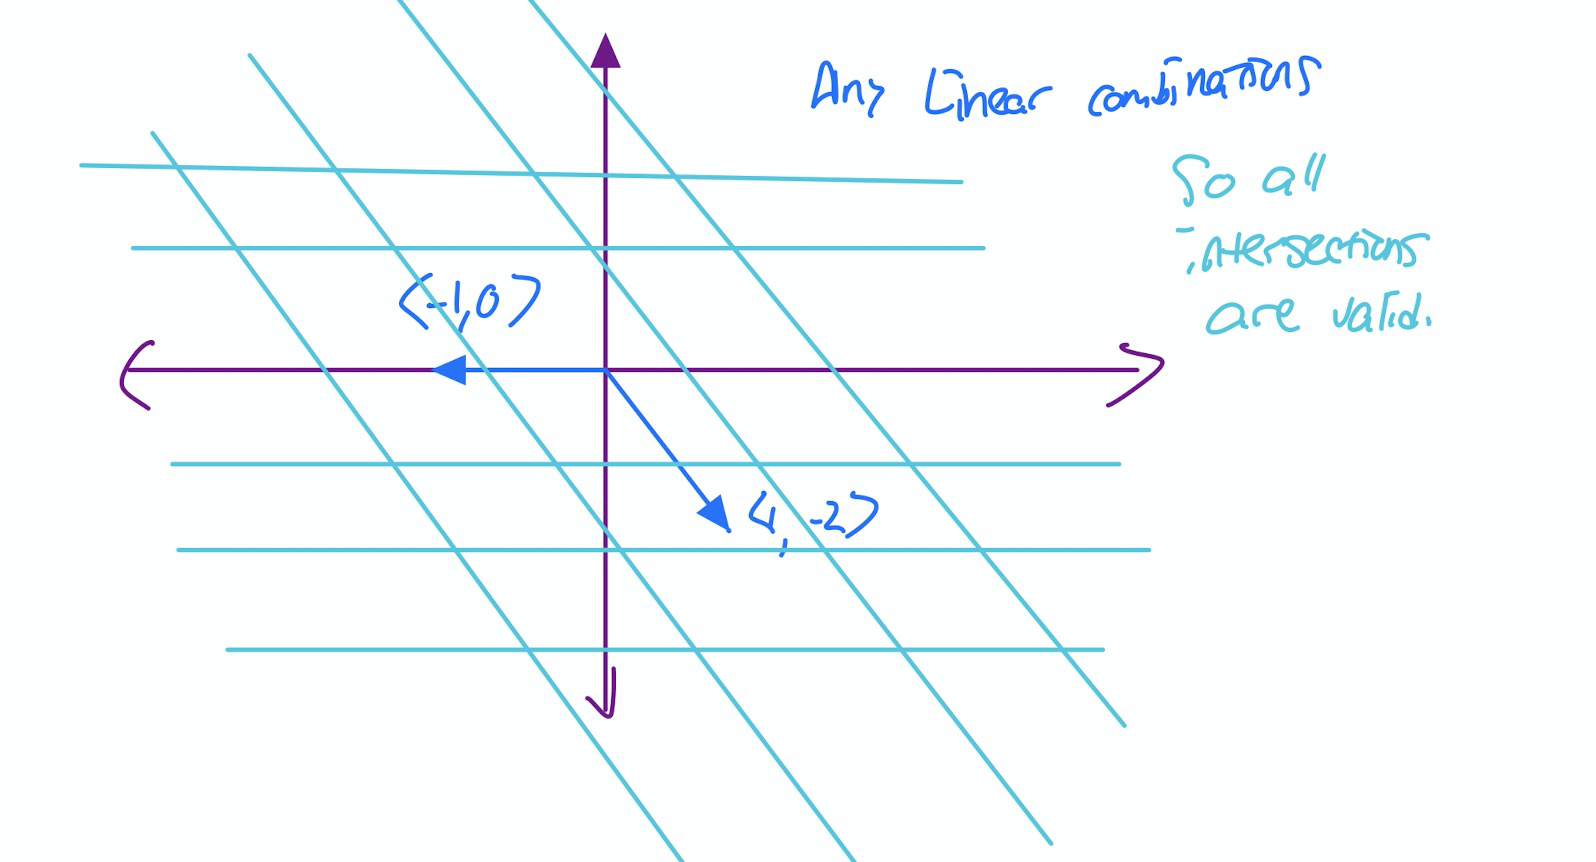 Any Linear combinations
So all
intersections
are valid.
(-1,0)
(1,-2)